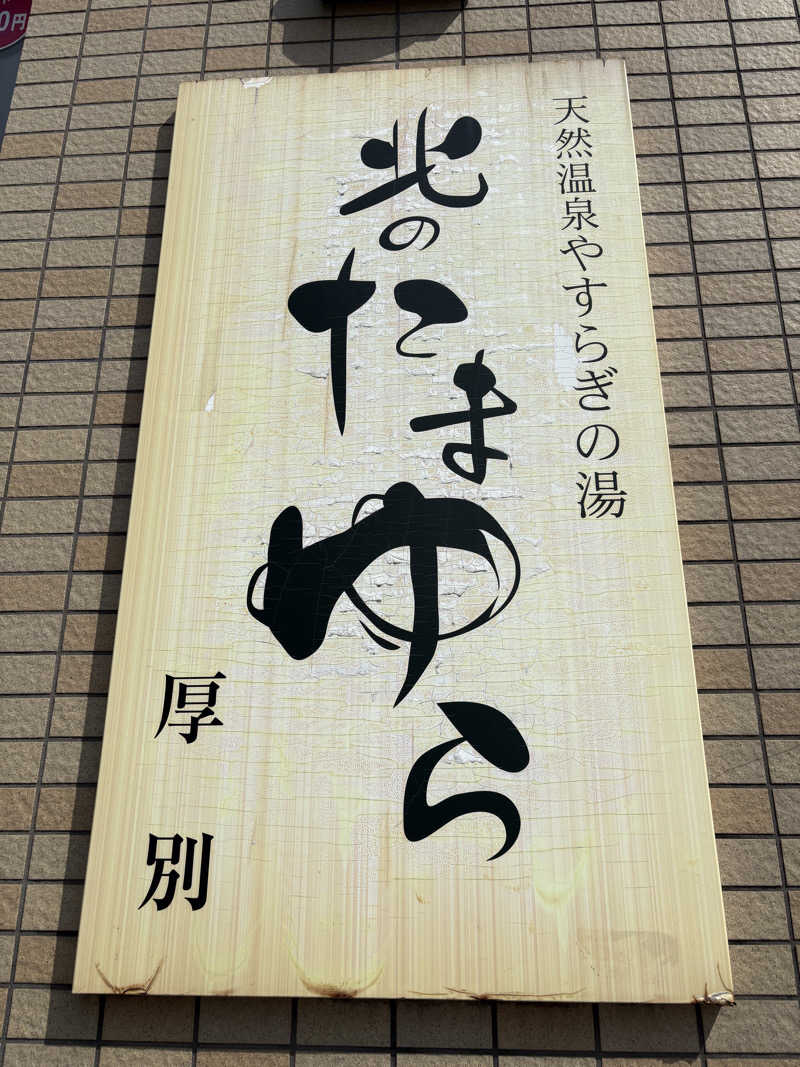 天然温泉やすらぎの湯
北のたまゆら
厚別
0円